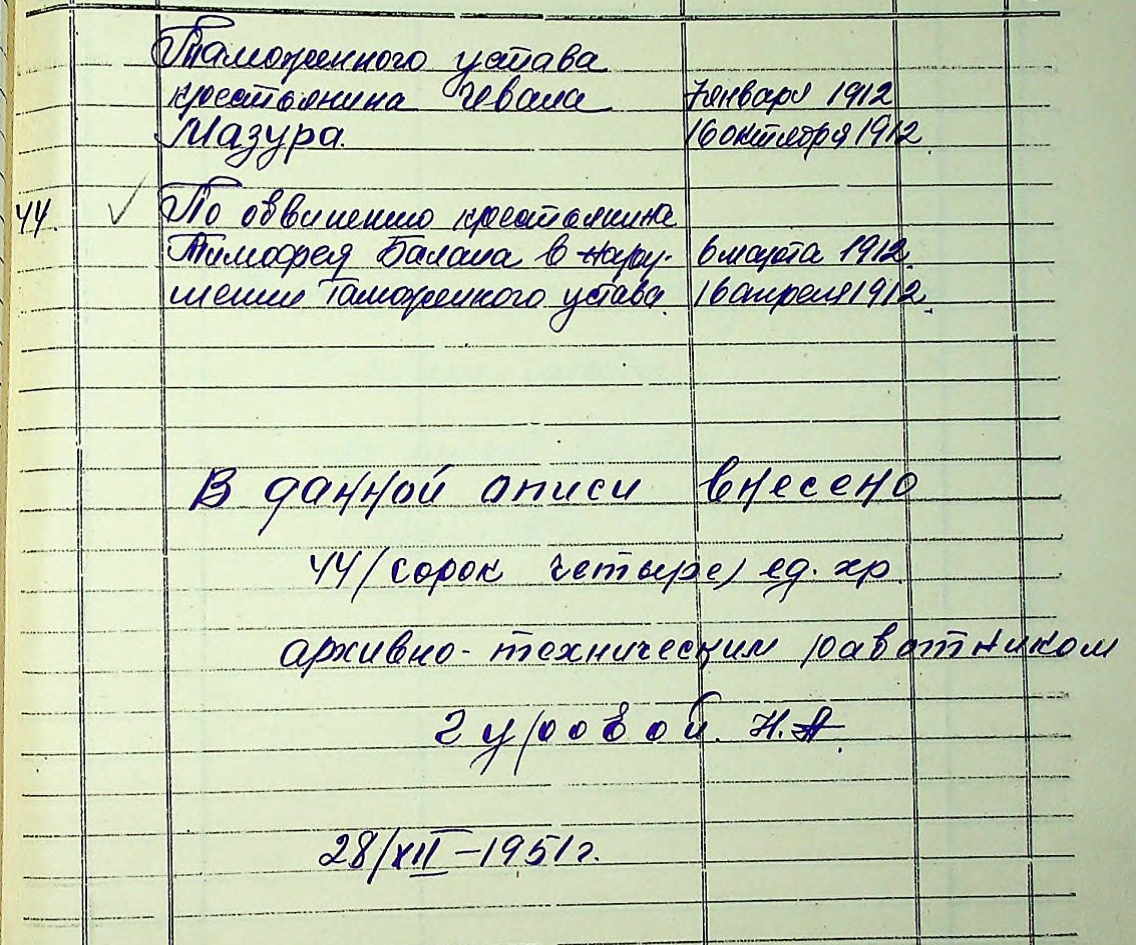 Таможенного устава
крестьянина Чевала 7 января 1912
Мазура. 16 октября 1912.
44. По обвинению крестьянина
Тимофея Балана в нару- 6 марта 1912.
шении Таможенного устава. 16 апреля 1912.
В данной описи внесено
44/сорок четыре/ ед. хр.
архивно-техническим работником
Гуровой. Н.А.
28/XII-1951 г.